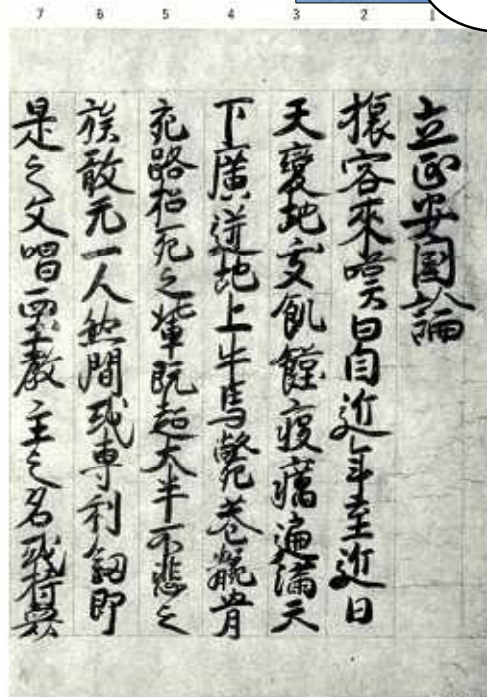 7 6 5 4 3 2 1
立正安国論
旅客來嘆曰自近年至近日
天變地夭飢饉疫癘遍滿天
下廣迸地上牛馬斃巷骸骨
充路招死之輩既超大半不悲之
族敢无一人然間或専利釼即
是之文唱西土教主之名或恃衆